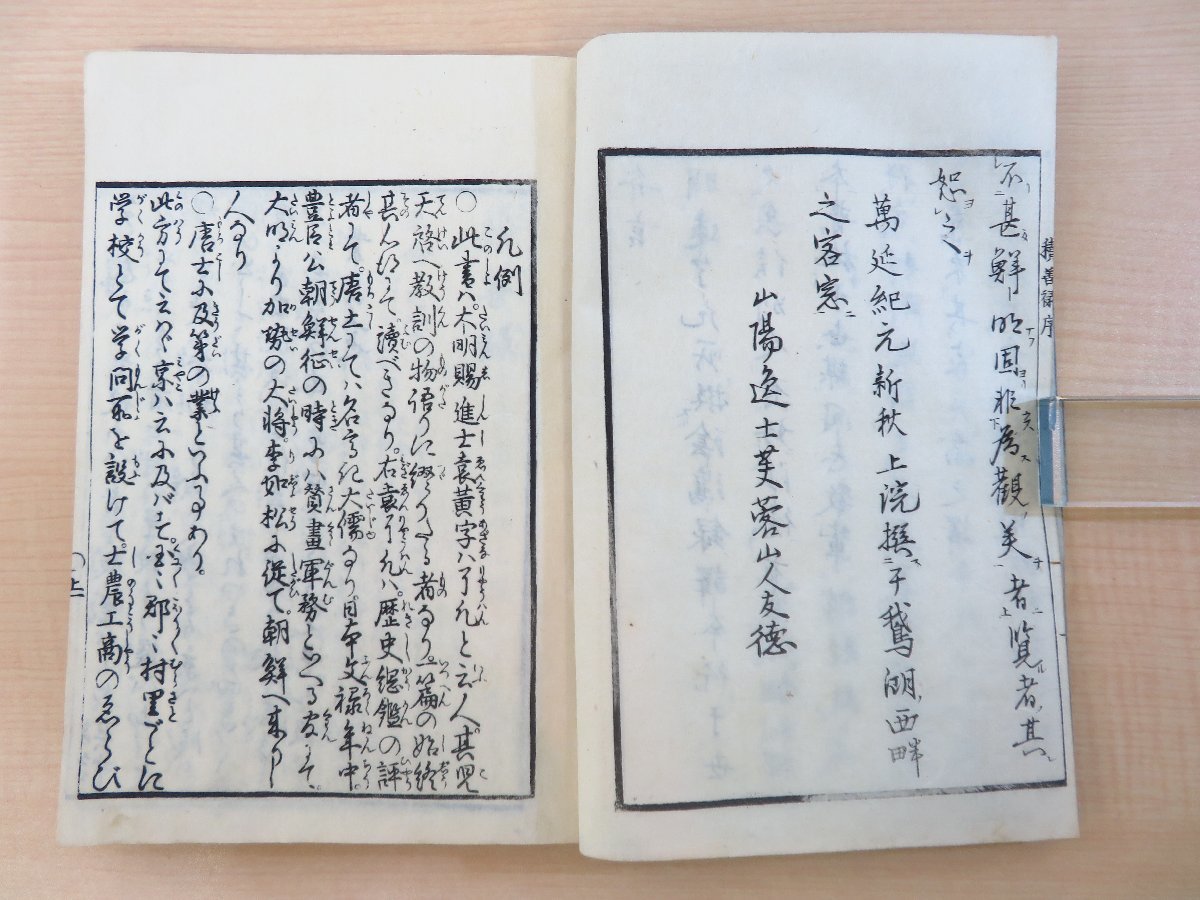 不甚鮮明固非為觀美者覧者其
恕之
萬延紀元新秋上浣撰于鵞湖西畔
之客窓
山陽逸士芙蓉山人友德
積善編序
凡例
○此書ハ大明賜進士袁黃字ハ了凡と云人其児
天啓へ教訓の物語りに綴りたる者なり一篇の始終
其心得にて讀べきなり。右袁了凡ハ歴史綱鑑の評
者にて。唐土にてハ名高き大儒なり。日本文禄年中。
豊臣公朝鮮征の時に贊畫軍務といへる官にて。
大明より加勢の大將。李如松に従て。朝鮮へ来りし
人なり
○唐士に及第の業といふ事あり。
此方にて云ハヾ京ハ云に及バず。国〻郡〻村里ごとに
学校とて学問所を設けて。士農工商のゑらび